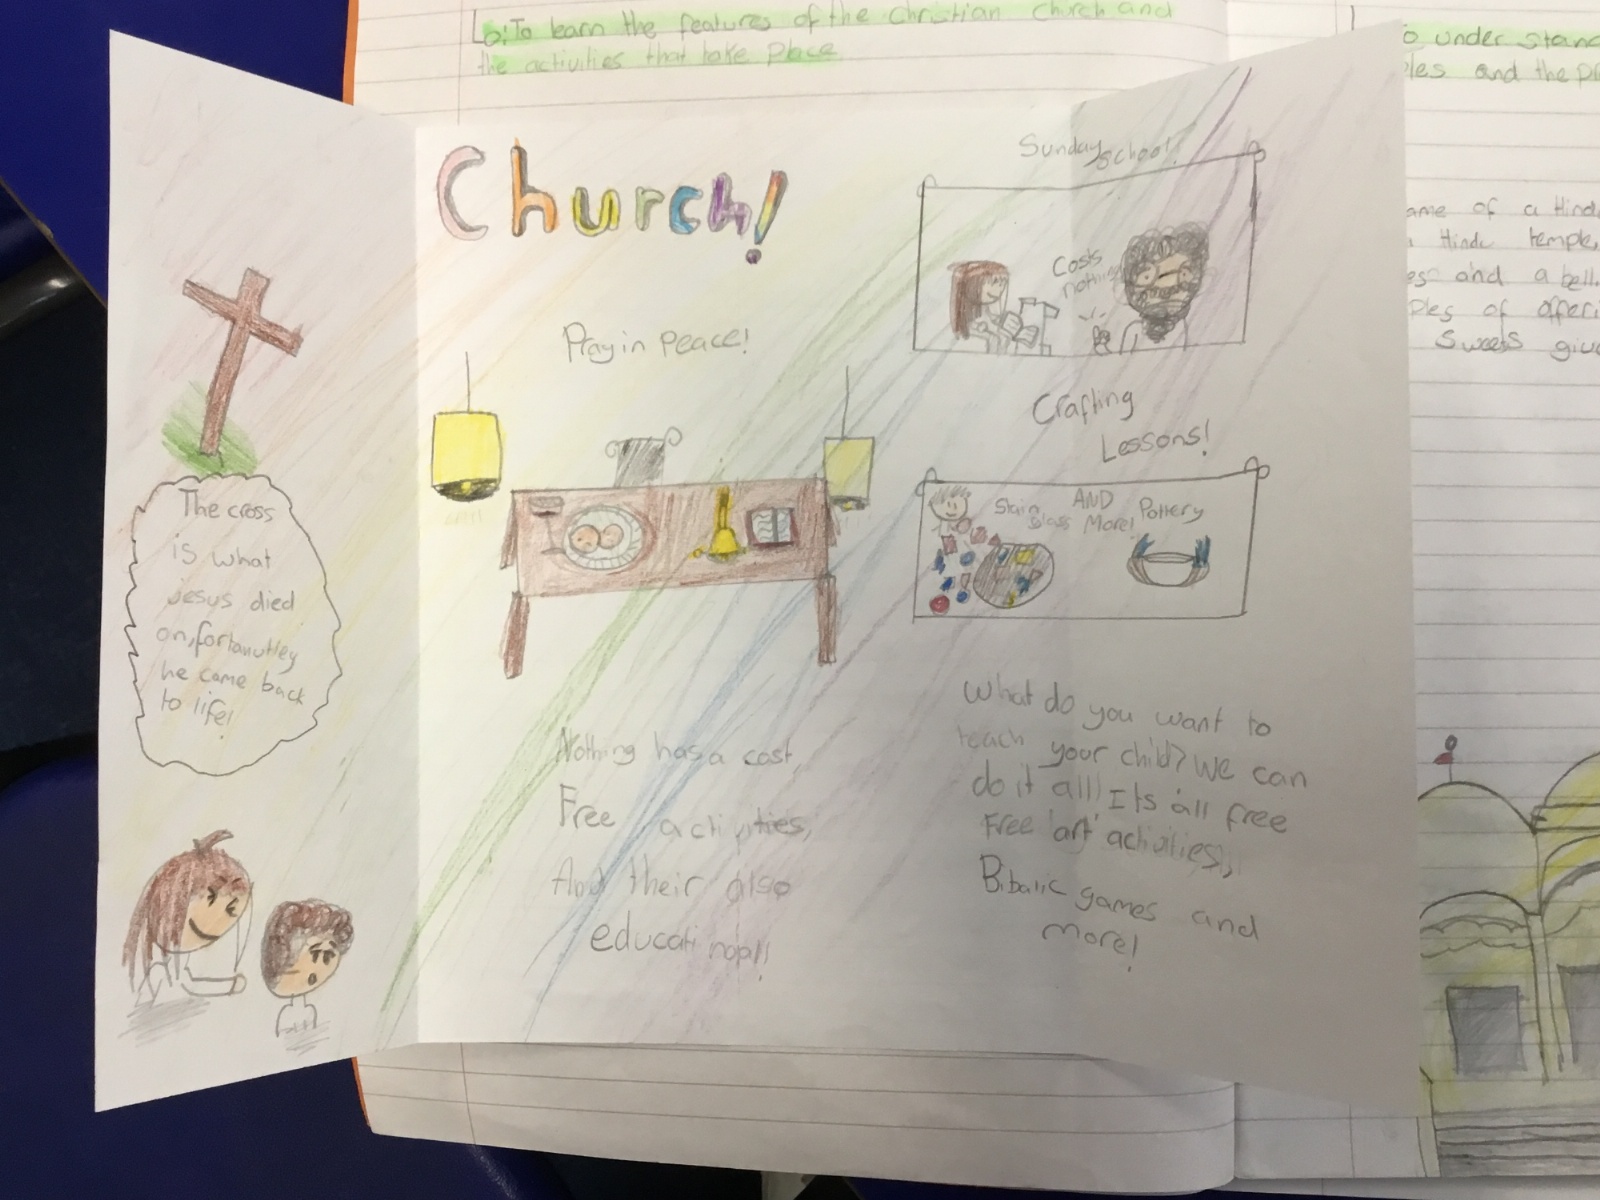 Lo: To learn the features of the Christian Church and
the activities that take place
Church!
Pray in peace!
Sunday school!
Costs
nothing
Crafting
Lessons!
Stain
glass
AND
More!
Pottery
The cross
is what
jesus died
on, fortanutley
he came back
to life!
Nothing has a cost,
Free activities,
And their also
educatinopl!
What do you want to
teach your child? We can
do it all! Its all free
Free 'art' activities,
Bibalic games and
more!
o under stand
ples and the
ame of a Hindu
Hindu temple,
es and a bell.
ples of offeri
Sweets give